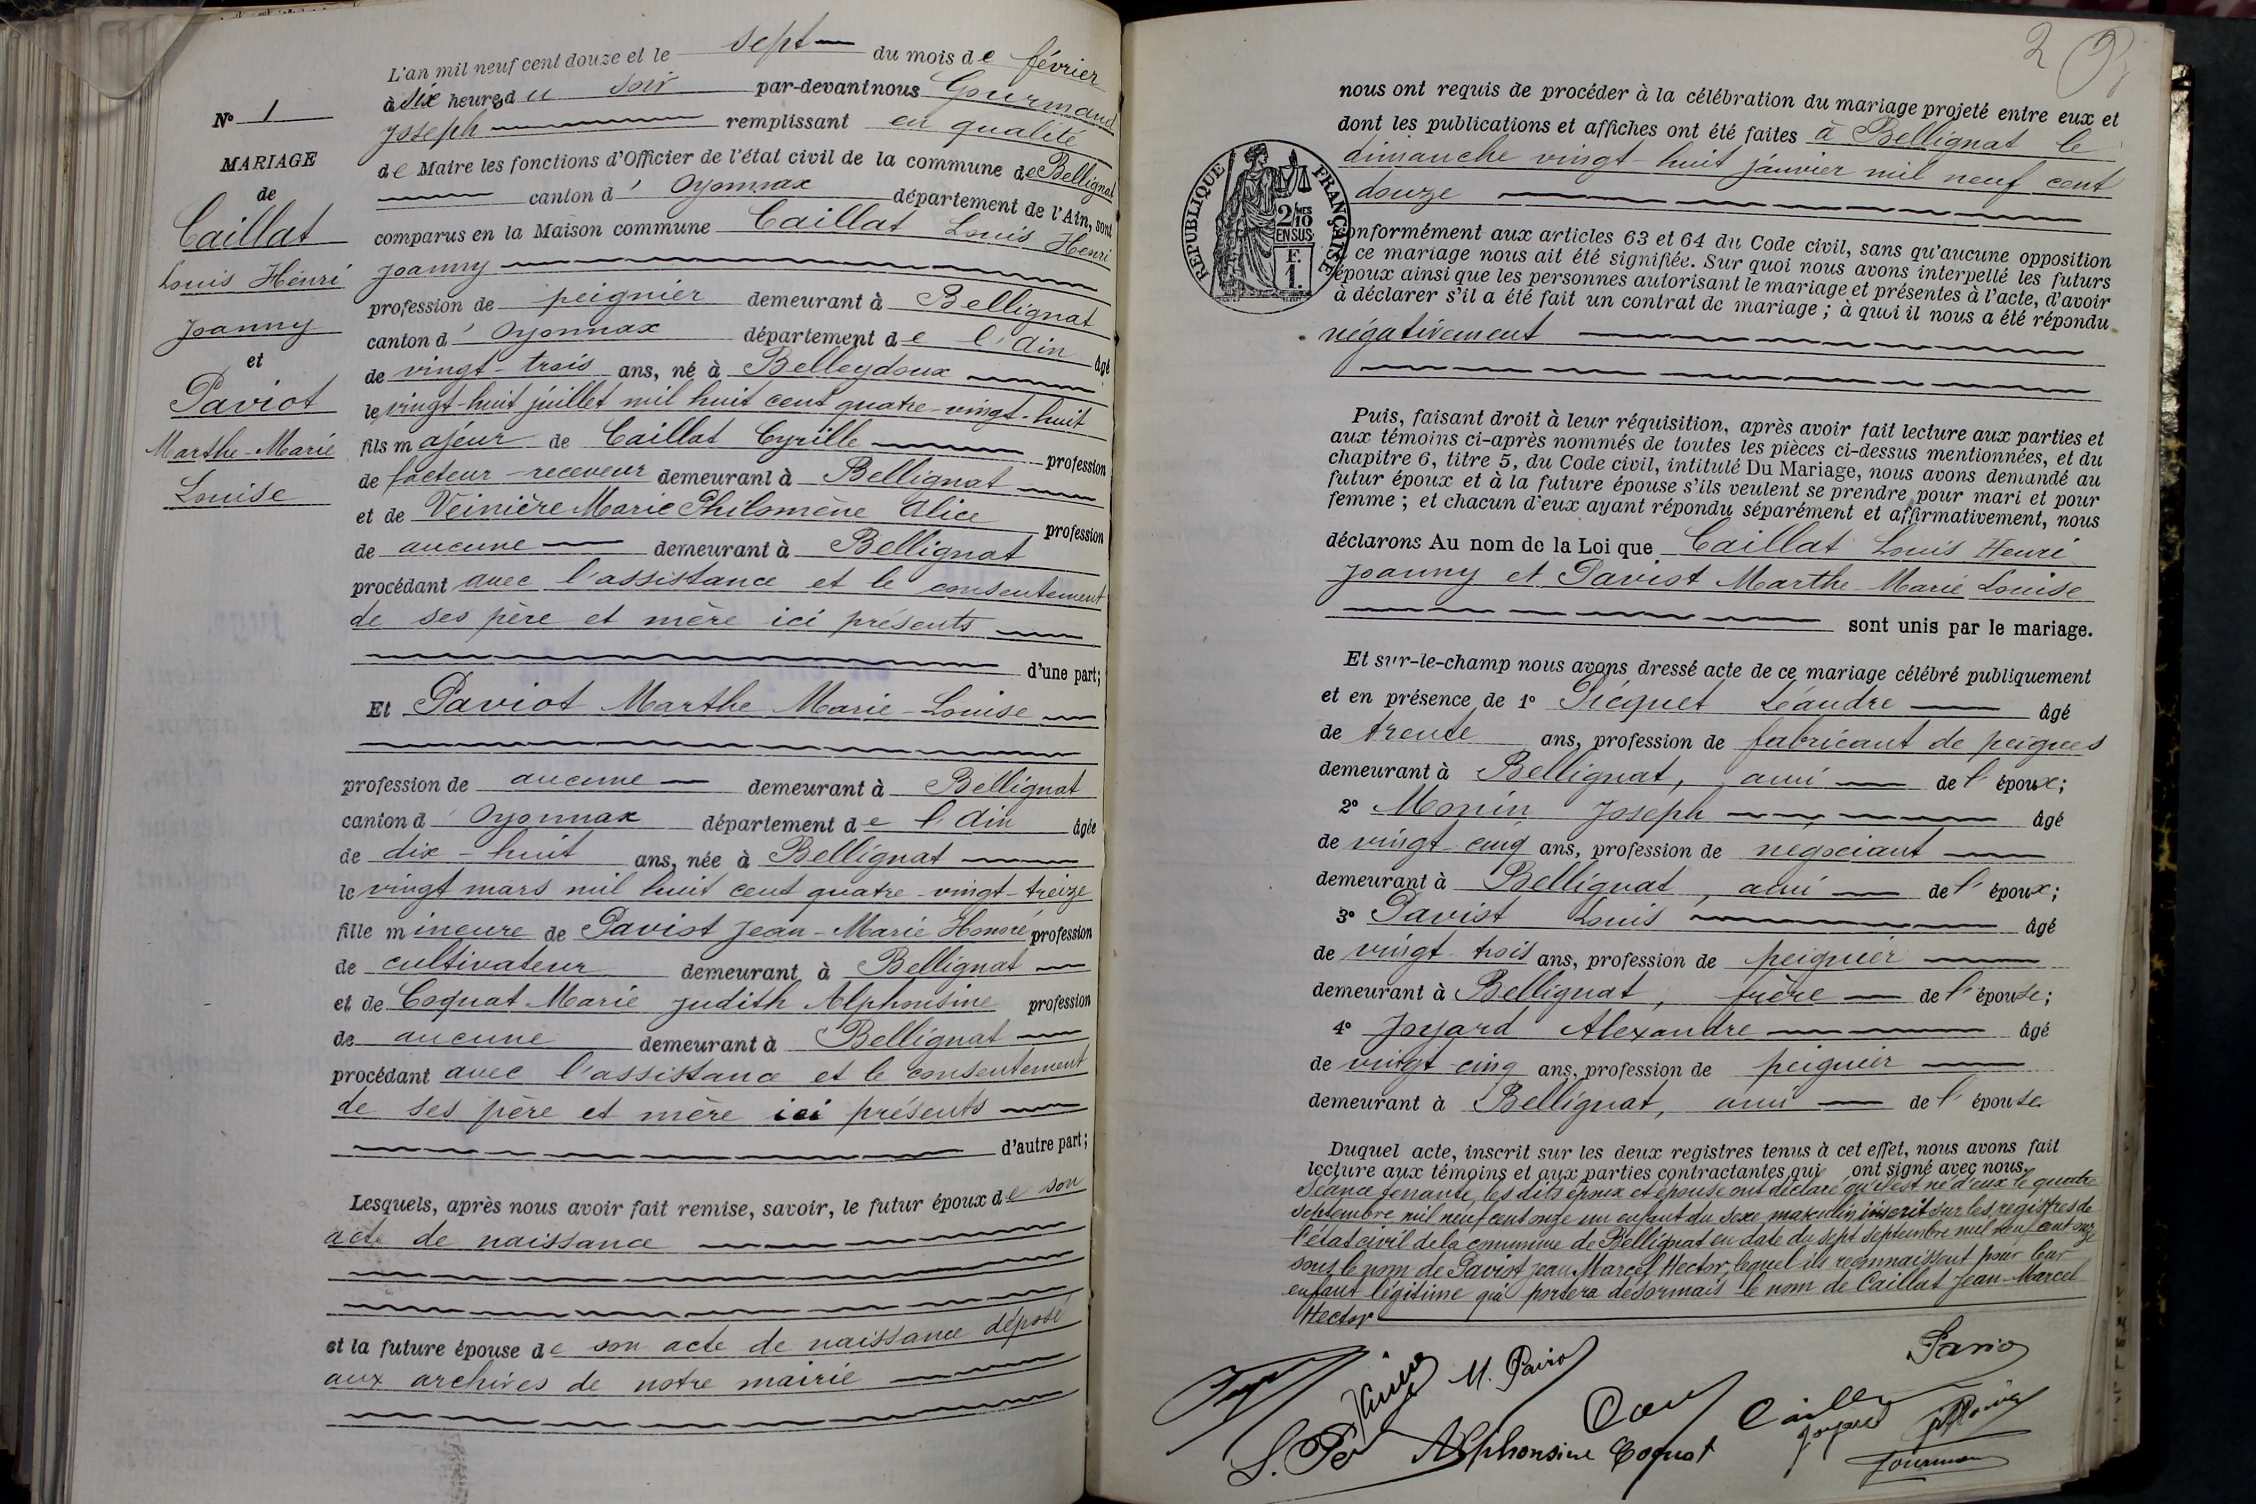 L'an mil neuf cent douze et le sept du mois de février
à six heures du soir par-devant nous Gourmand
Joseph remplissant en qualité
de Maire les fonctions d'Officier de l'état civil de la commune de Bellignat
canton d'Oyonnax département de l'Ain, sont
comparus en la Maison commune Caillat Louis Henri
Joanny
profession de peignier demeurant à Bellignat
canton d'Oyonnax département de l'Ain âgé
de vingt-trois ans, né à Belleydoux
le vingt-huit juillet mil huit cent quatre-vingt-huit
fils majeur de Caillat Cyrille profession
de facteur-receveur demeurant à Bellignat
et de Veinière Marie Philomène Alice profession
de aucune demeurant à Bellignat
procédant avec l'assistance et le consentement
de ses père et mère ici présents
d'une part;
Et Paviot Marthe Marie-Louise
profession de aucune demeurant à Bellignat
canton d'Oyonnax département de l'Ain âgée
de dix-huit ans, née à Bellignat
le vingt mars mil huit cent quatre-vingt-treize
fille mineure de Paviot Jean-Marie Honoré profession
de cultivateur demeurant à Bellignat
et de Coquat Marie Judith Alphonsine profession
de aucune demeurant à Bellignat
procédant avec l'assistance et le consentement
de ses père et mère ici présents
d'autre part;
Lesquels, après nous avoir fait remise, savoir, le futur époux de son
acte de naissance
et la future épouse de son acte de naissance déposé
aux archives de notre mairie
No 1
MARIAGE
de
Caillat
Louis Henri
Joanny
et
Paviot
Marthe-Marie
Louise
2
nous ont requis de procéder à la célébration du mariage projeté entre eux et
dont les publications et affiches ont été faites à Bellignat le
dimanche vingt-huit janvier mil neuf cent
douze
RÉPUBLIQUE FRANÇAISE
2/10 MES
EN SUS
F.
1.
conformément aux articles 63 et 64 du Code civil, sans qu'aucune opposition
à ce mariage nous ait été signifiée. Sur quoi nous avons interpellé les futurs
époux ainsi que les personnes autorisant le mariage et présentes à l'acte, d'avoir
à déclarer s'il a été fait un contrat de mariage; à quoi il nous a été répondu
négativement
Puis, faisant droit à leur réquisition, après avoir fait lecture aux parties et
aux témoins ci-après nommés de toutes les pièces ci-dessus mentionnées, et du
chapitre 6, titre 5, du Code civil, intitulé Du Mariage, nous avons demandé au
futur époux et à la future épouse s'ils veulent se prendre pour mari et pour
femme; et chacun d'eux ayant répondu séparément et affirmativement, nous
déclarons Au nom de la Loi que Caillat Louis Henri
Joanny et Paviot Marthe-Marie Louise
sont unis par le mariage.
Et sur-le-champ nous avons dressé acte de ce mariage célébré publiquement
et en présence de 1o Picquet Léandre âgé
de trente ans, profession de fabricant de peignes
demeurant à Bellignat, ami de l'époux;
2o Monin Joseph âgé
de vingt-cinq ans, profession de négociant
demeurant à Bellignat, ami de l'époux;
3o Paviot Louis âgé
de vingt-trois ans, profession de peignier
demeurant à Bellignat, frère de l'épouse;
4o Joyard Alexandre âgé
de vingt-cinq ans, profession de peignier
demeurant à Bellignat, ami de l'épouse
Duquel acte, inscrit sur les deux registres tenus à cet effet, nous avons fait
lecture aux témoins et aux parties contractantes qui ont signé avec nous.
Séance tenante, les dits époux et épouse ont déclaré qu'il est né d'eux le quatre
septembre mil neuf cent onze un enfant du sexe masculin inscrit sur les registres de
l'état civil de la commune de Bellignat en date du sept septembre mil neuf cent onze
sous le nom de Paviot Jean Marcel Hector, lequel ils reconnaissent pour leur
enfant légitime qui portera désormais le nom de Caillat Jean-Marcel
Hector
M. Paviot
Alphonsine Coquat
Joyard